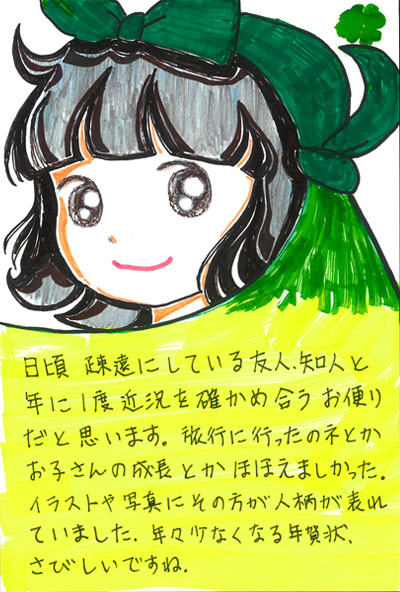 日頃 疎遠にしている友人.知人と
年に1度近況を確かめ合うお便り
だと思います。旅行に行ったのネとか
お子さんの成長とかほほえましかった.
イラストや写真にその方が人柄が表れ
ていました.年々少なくなる年賀状、
さびしいですね.